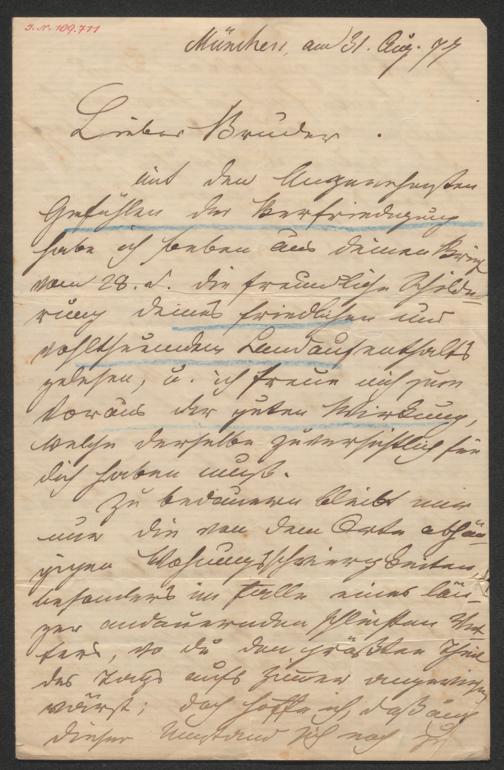 J. N. 109.711
München, am 31. Aug. 77
Lieber Bruder.
Mit den Angenehmsten
Gefühlen der Befriedigung
habe ich soeben aus deinem Brief
vom 28. d. die freundliche Schilde-
rung deines friedlichen und
wohlthuenden Landaufenthalts
gelesen, u. ich freue mich zum
voraus der guten Wirkung,
welche derselbe zuversichtlich für
dich haben muß.
Zu bedauern bleibt mir
nur die von dem Orte abhän-
gigen Wohnungsschwierigkeiten,
besonders im Falle eines län-
ger andauernden schlechten Wet-
ters, wo du den größten Theil
des Tags aufs Zimmer angewiesen
wärst; doch hoffe ich, daß auch
dieser Umstand sich noch